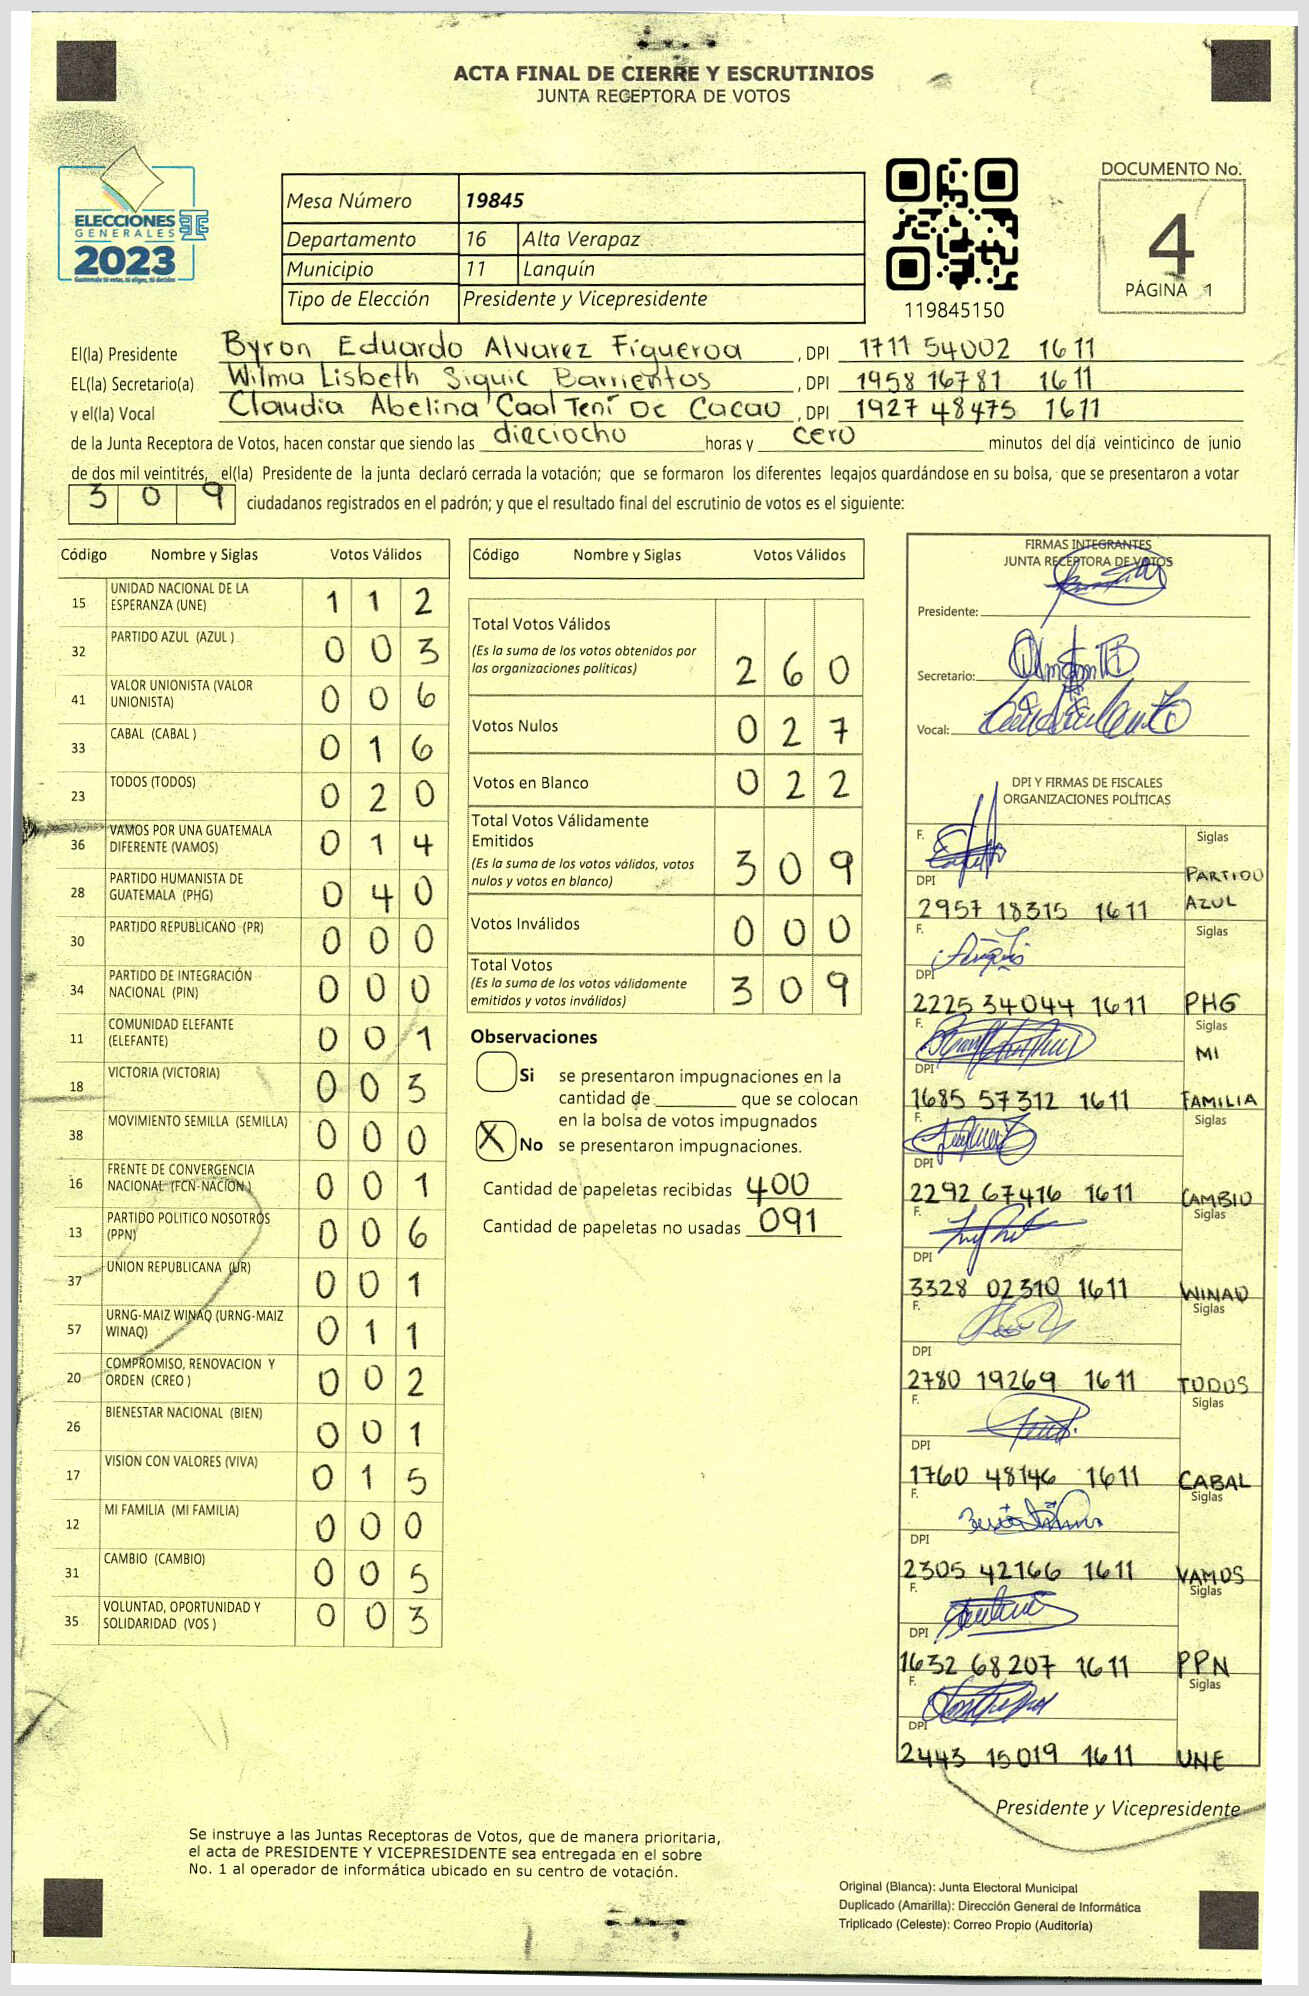 ACTA FINAL DE CIERRE Y ESCRUTINIOS
JUNTA RECEPTORA DE VOTOS
ELECCIONES
GENERALES
2023
Guatemala tú votas, tú eliges, tú decides
TSE
Mesa Número 19845
Departamento 16 Alta Verapaz
Municipio 11 Lanquín
Tipo de Elección Presidente y Vicepresidente
119845150
DOCUMENTO No.
4
PÁGINA 1
El(la) Presidente Byron Eduardo Alvarez Figueroa, DPI 1711 54002 1611
EL(la) Secretario(a) Wilma Lisbeth Siquic Barrientos, DPI 1958 16781 1611
y el(la) Vocal Claudia Abelina Caal Tení De Cacao, DPI 1927 48475 1611
de la Junta Receptora de Votos, hacen constar que siendo las dieciocho horas y cero minutos del día veinticinco de junio
de dos mil veintitrés, el(la) Presidente de la junta declaró cerrada la votación; que se formaron los diferentes legajos guardándose en su bolsa, que se presentaron a votar
3 0 9 ciudadanos registrados en el padrón; y que el resultado final del escrutinio de votos es el siguiente:
Código Nombre y Siglas Votos Válidos
15 UNIDAD NACIONAL DE LA ESPERANZA (UNE) 1 1 2
32 PARTIDO AZUL (AZUL ) 0 0 3
41 VALOR UNIONISTA (VALOR UNIONISTA) 0 0 6
33 CABAL (CABAL ) 0 1 6
23 TODOS (TODOS) 0 2 0
36 VAMOS POR UNA GUATEMALA DIFERENTE (VAMOS) 0 1 4
28 PARTIDO HUMANISTA DE GUATEMALA (PHG) 0 4 0
30 PARTIDO REPUBLICANO (PR) 0 0 0
34 PARTIDO DE INTEGRACIÓN NACIONAL (PIN) 0 0 0
11 COMUNIDAD ELEFANTE (ELEFANTE) 0 0 1
18 VICTORIA (VICTORIA) 0 0 3
38 MOVIMIENTO SEMILLA (SEMILLA) 0 0 0
16 FRENTE DE CONVERGENCIA NACIONAL (FCN-NACION ) 0 0 1
13 PARTIDO POLITICO NOSOTROS (PPN) 0 0 6
37 UNION REPUBLICANA (UR) 0 0 1
57 URNG-MAIZ WINAQ (URNG-MAIZ WINAQ) 0 1 1
20 COMPROMISO, RENOVACION Y ORDEN (CREO ) 0 0 2
26 BIENESTAR NACIONAL (BIEN) 0 0 1
17 VISION CON VALORES (VIVA) 0 1 5
12 MI FAMILIA (MI FAMILIA) 0 0 0
31 CAMBIO (CAMBIO) 0 0 5
35 VOLUNTAD, OPORTUNIDAD Y SOLIDARIDAD (VOS ) 0 0 3
Código Nombre y Siglas Votos Válidos
Total Votos Válidos
(Es la suma de los votos obtenidos por
las organizaciones políticas) 2 6 0
Votos Nulos 0 2 7
Votos en Blanco 0 2 2
Total Votos Válidamente
Emitidos
(Es la suma de los votos válidos, votos
nulos y votos en blanco) 3 0 9
Votos Inválidos 0 0 0
Total Votos
(Es la suma de los votos válidamente
emitidos y votos inválidos) 3 0 9
Observaciones
Si se presentaron impugnaciones en la
cantidad de ________ que se colocan
en la bolsa de votos impugnados
X No se presentaron impugnaciones.
Cantidad de papeletas recibidas 400
Cantidad de papeletas no usadas 091
FIRMAS INTEGRANTES
JUNTA RECEPTORA DE VOTOS
Presidente:
Secretario:
Vocal:
DPI Y FIRMAS DE FISCALES
ORGANIZACIONES POLÍTICAS
F. Siglas
DPI PARTIDO
2957 18315 1611 AZUL
F. Siglas
DPI
2225 34044 1611 PHG
F. Siglas
DPI MI
1685 57312 1611 FAMILIA
F. Siglas
DPI
2292 67416 1611 CAMBIO
F. Siglas
DPI
3328 02310 1611 WINAQ
F. Siglas
DPI
2780 19269 1611 TODOS
F. Siglas
DPI
1760 48146 1611 CABAL
F. Siglas
DPI
2305 42166 1611 VAMOS
F. Siglas
DPI
1632 68207 1611 PPN
F. Siglas
DPI
2443 15019 1611 UNE
Presidente y Vicepresidente
Se instruye a las Juntas Receptoras de Votos, que de manera prioritaria,
el acta de PRESIDENTE Y VICEPRESIDENTE sea entregada en el sobre
No. 1 al operador de informática ubicado en su centro de votación.
Original (Blanca): Junta Electoral Municipal
Duplicado (Amarilla): Dirección General de Informática
Triplicado (Celeste): Correo Propio (Auditoría)